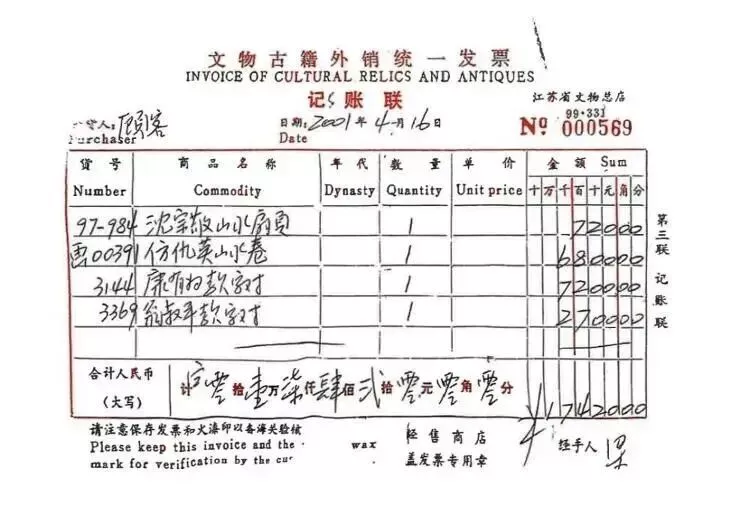 文物古籍外销统一发票
INVOICE OF CULTURAL RELICS AND ANTIQUES
记账联
江苏省文物总店
99·331
货人: 顾客 日期: 2001年4月16日 Nº 000569
Purchaser Date
货号 商品名称 年代 数量 单价 金额 Sum
Number Commodity Dynasty Quantity Unit price 十万千百十元角分
97-984 沈宗敬山水扇页 1 72000
00391 仿仇英山水卷 1 680000
3144 康有为款字对 1 720000
3369 翁叔平款字对 1 270000
第三联 记账联
合计人民币 计 零拾壹万柒仟肆佰贰拾零元零角零分 1742000
(大写)
请注意保存发票和火漆印以备海关验核 经售商店 经手人 梁
Please keep this invoice and the wax 盖发票专用章
mark for verification by the cu